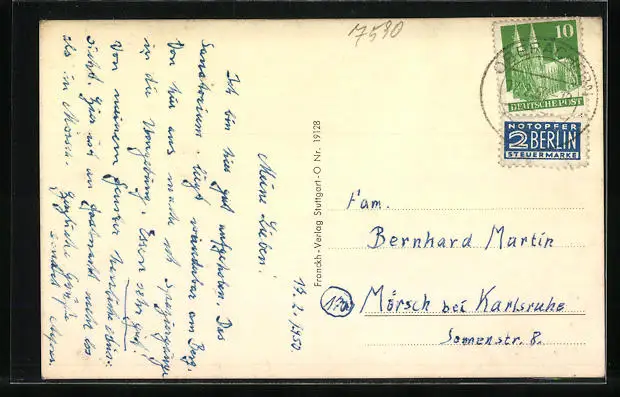 7590
10
DEUTSCHE POST
NOTOPFER
2 BERLIN
STEUERMARKE
Franckh-Verlag Stuttgart-O Nr. 19128
13.2.1950
Meine Lieben!
Ich bin hier gut aufgehoben. Das
Sanatorium liegt wunderbar am Berg.
Von hier aus mache ich Spaziergänge
in die Umgebung. Essen sehr gut.
Von meinem Fenster herrliche
Hier ist an Fastnacht nichts los
als in Mörsch. Herzliche Grüße
sendet
Fam.
Bernhard Martin
Mörsch bei Karlsruhe
Sonnenstr. 8.